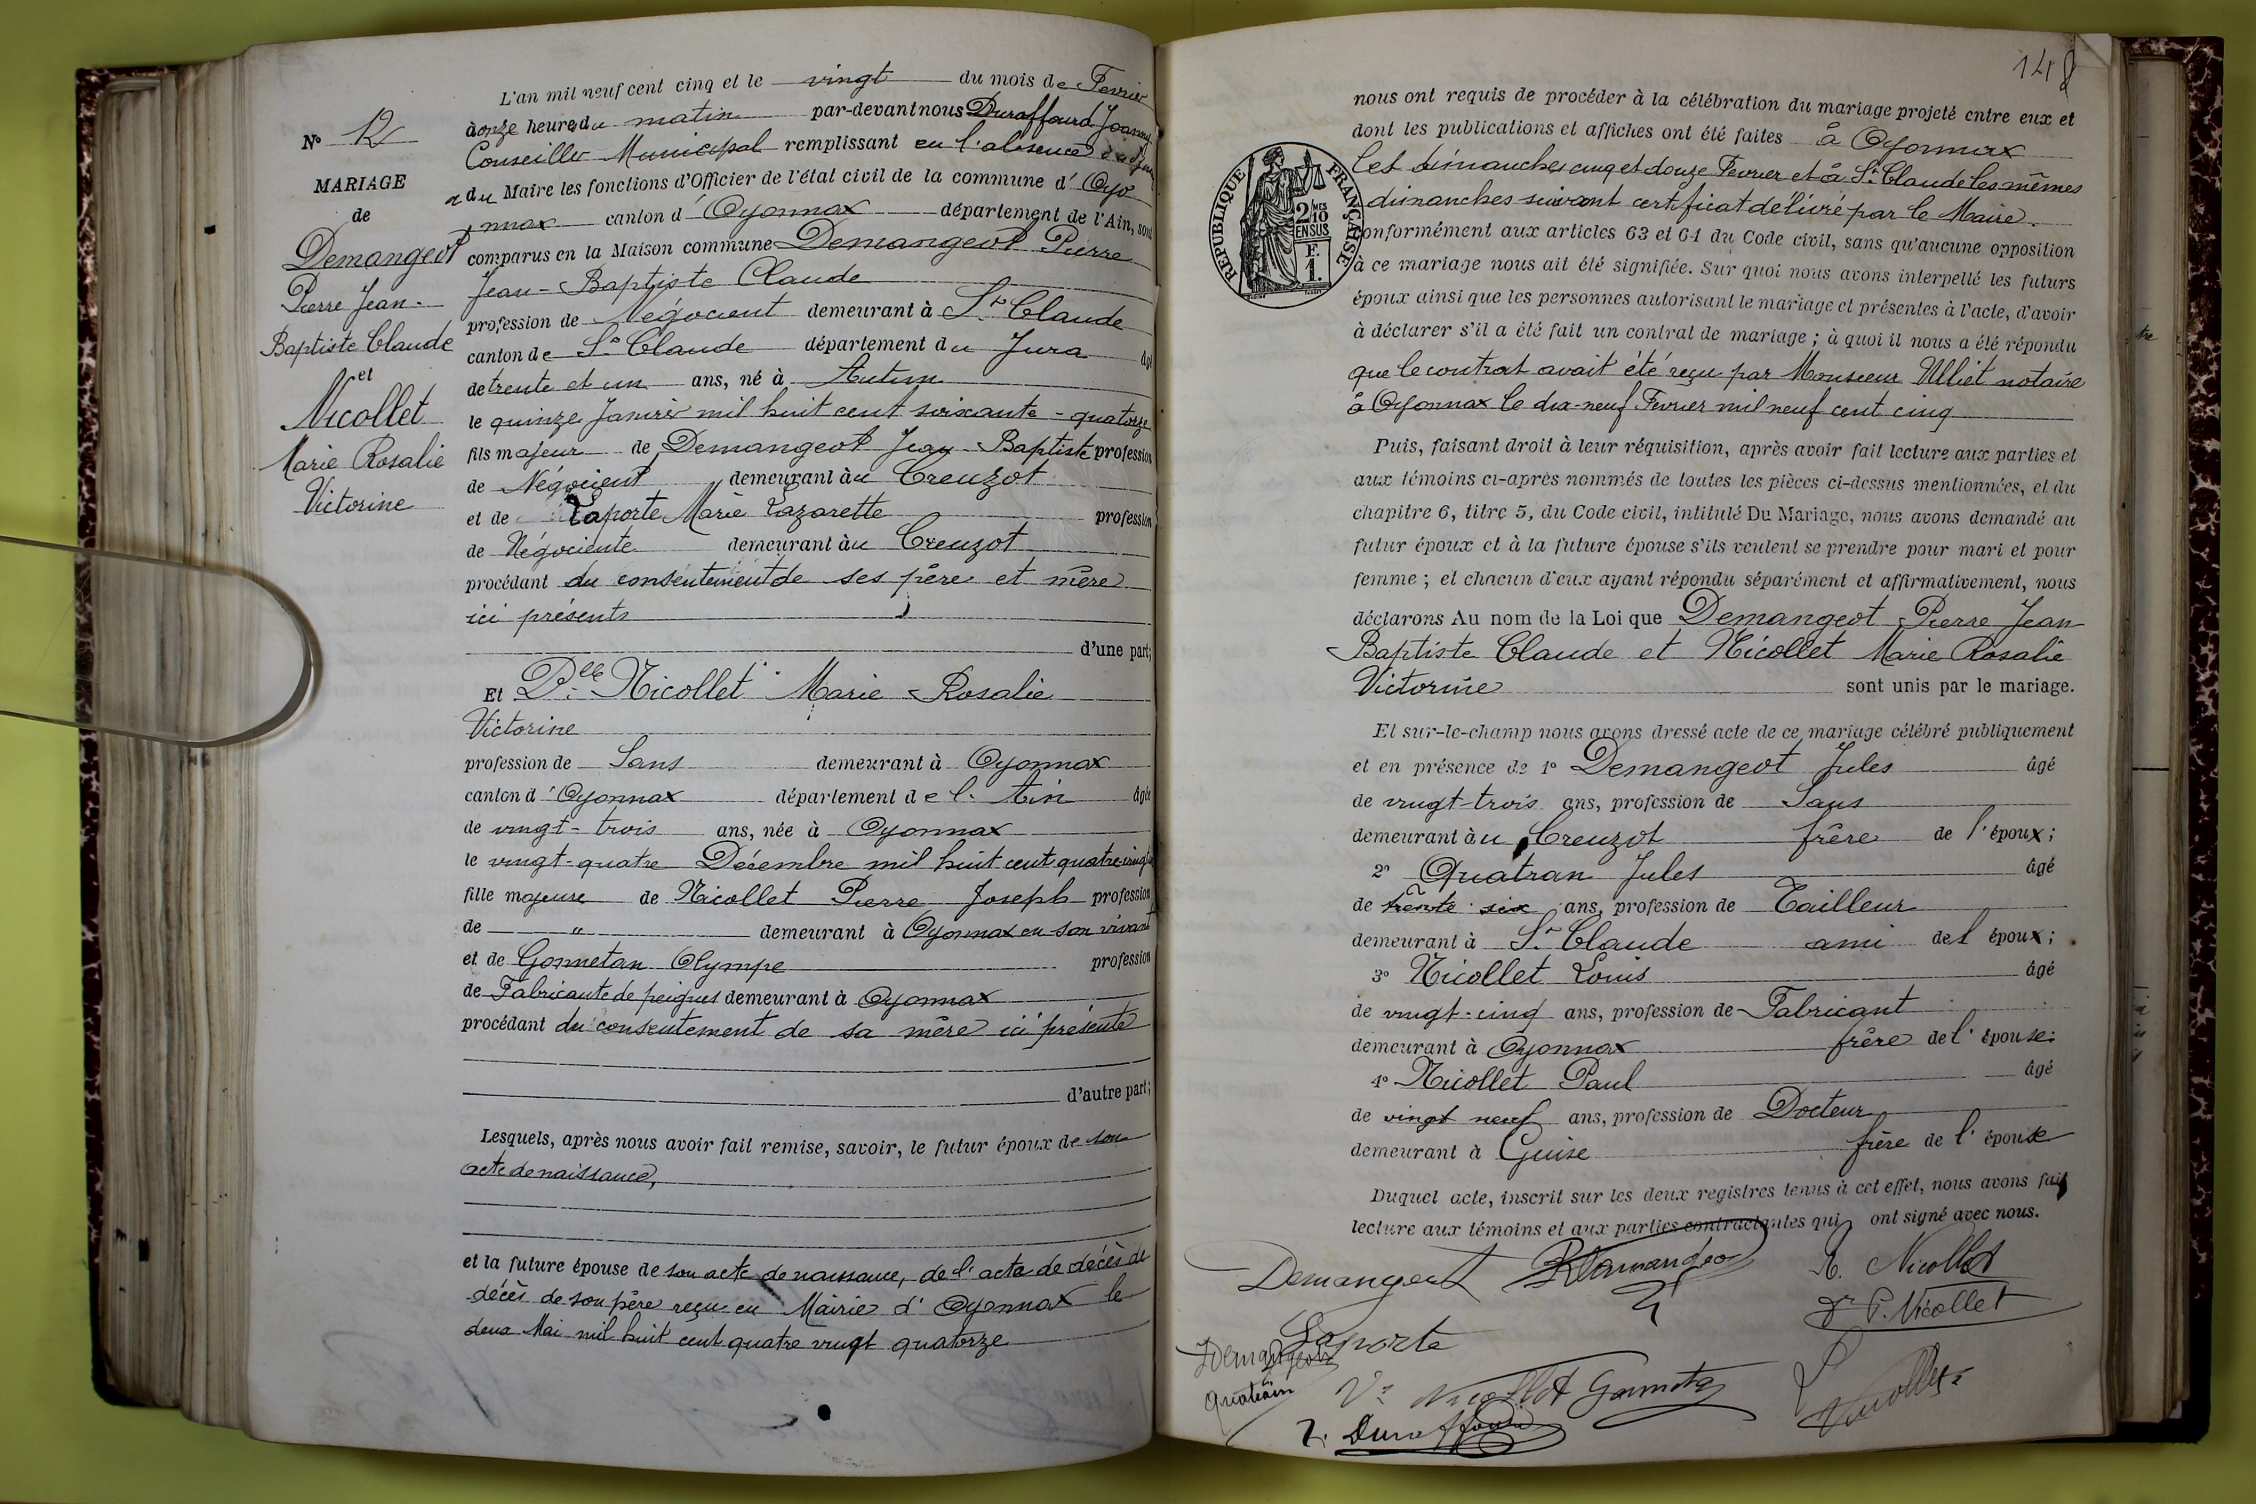 L'an mil neuf cent cinq et le vingt du mois de Fevrier
à onze heures du matin par-devant nous Duraffourd Joanny
Conseiller Municipal remplissant en l'absence
du Maire les fonctions d'Officier de l'état civil de la commune d' Oyo
nnax canton d' Oyonnax département de l'Ain, sont
comparus en la Maison commune Demangeot Pierre
Jean-Baptiste Claude
profession de Négociant demeurant à St Claude
canton de St Claude département du Jura âgé
de trente et un ans, né à Autun
le quinze Janvier mil huit cent soixante-quatorze
fils majeur de Demangeot Jean-Baptiste profession
de Négociant demeurant au Creuzot
et de Laporte Marie Lazarette profession
de Négociente demeurant au Creuzot
procédant du consentement de ses père et mère
ici présents
d'une part;
Et Dlle Nicollet Marie-Rosalie
Victorine
profession de Sans demeurant à Oyonnax
canton d' Oyonnax département de l'Ain âgée
de vingt-trois ans, née à Oyonnax
le vingt-quatre Décembre mil huit cent quatre-vingt
fille majeure de Nicollet Pierre Joseph profession
de " demeurant à Oyonnax en son vivant
et de Gonnetan Olympe profession
de Fabricante de peignes demeurant à Oyonnax
procédant du consentement de sa mère ici présente
d'autre part;
Lesquels, après nous avoir fait remise, savoir, le futur époux de son
acte de naissance,
et la future épouse de son acte de naissance, de l'acte de décès de
décès de son père reçu en Mairie d'Oyonnax le
deux Mai mil huit cent quatre vingt quatorze
No 12
MARIAGE
de
Demangeot
Pierre Jean-
Baptiste Claude
et
Nicollet
Marie Rosalie
Victorine
148
nous ont requis de procéder à la célébration du mariage projeté entre eux et
dont les publications et affiches ont été faites à Oyonnax
les dimanches cinq et douze Fevrier et à St Claude les mêmes
dimanches suivant certificat délivré par le Maire.
conformément aux articles 63 et 64 du Code civil, sans qu'aucune opposition
à ce mariage nous ait été signifiée. Sur quoi nous avons interpellé les futurs
époux ainsi que les personnes autorisant le mariage et présentes à l'acte, d'avoir
à déclarer s'il a été fait un contrat de mariage ; à quoi il nous a été répondu
que le contrat avait été reçu par Monsieur Ulliet notaire
à Oyonnax le dix-neuf Fevrier mil neuf cent cinq
RÉPUBLIQUE FRANÇAISE
2 MES
10
EN SUS
F.
1.
Puis, faisant droit à leur réquisition, après avoir fait lecture aux parties et
aux témoins ci-après nommés de toutes les pièces ci-dessus mentionnées, et du
chapitre 6, titre 5, du Code civil, intitulé Du Mariage, nous avons demandé au
futur époux et à la future épouse s'ils veulent se prendre pour mari et pour
femme ; et chacun d'eux ayant répondu séparément et affirmativement, nous
déclarons Au nom de la Loi que Demangeot Pierre Jean
Baptiste Claude et Nicollet Marie Rosalie
Victorine sont unis par le mariage.
Et sur-le-champ nous avons dressé acte de ce mariage célébré publiquement
et en présence de 1o Demangeot Jules âgé
de vingt-trois ans, profession de Sans
demeurant au Creuzot frère de l'époux;
2o Quatran Jules âgé
de trente six ans, profession de Tailleur
demeurant à St Claude ami de l'époux;
3o Nicollet Louis âgé
de vingt-cinq ans, profession de Fabricant
demeurant à Oyonnax frère de l'épouse:
4o Nicollet Paul âgé
de vingt neuf ans, profession de Docteur
demeurant à Guise frère de l'épouse
Duquel acte, inscrit sur les deux registres tenus à cet effet, nous avons fait
lecture aux témoins et aux parties contractantes qui ont signé avec nous.
Demangeot
R. Nicollet
Dr P. Nicollet
Laporte
Demangeot
Quatran
Vve Nicollet Gonnetan
L Nicollet
J. Duraffourd